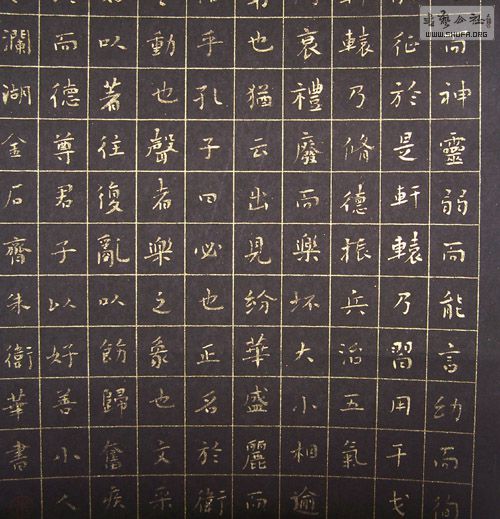 而神靈弱而能言幼而徇
征於是軒轅乃習用干戈
轅乃脩德振兵治五氣
衰禮廢而樂坏大小相逾
也猶云出見紛華盛麗而
乎孔子曰必也正名於衛
動也聲者樂之象也文采
以著往復亂以飭歸奮疾
而德尊君子以好善小人
瀾湖金石齋朱衛華書
公社
WWW.SHUFA.ORG